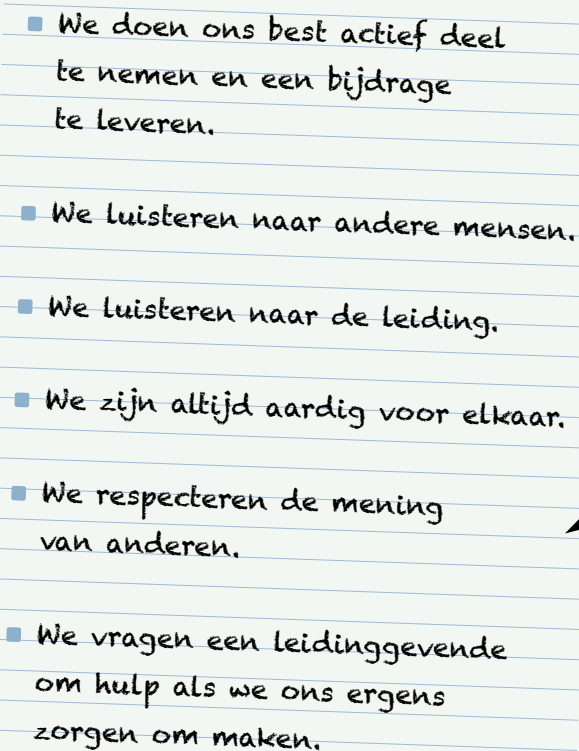 We doen ons best actief deel
te nemen en een bijdrage
te leveren.
We luisteren naar andere mensen.
We luisteren naar de leiding.
We zijn altijd aardig voor elkaar.
We respecteren de mening
van anderen.
We vragen een leidinggevende
om hulp als we ons ergens
zorgen om maken.